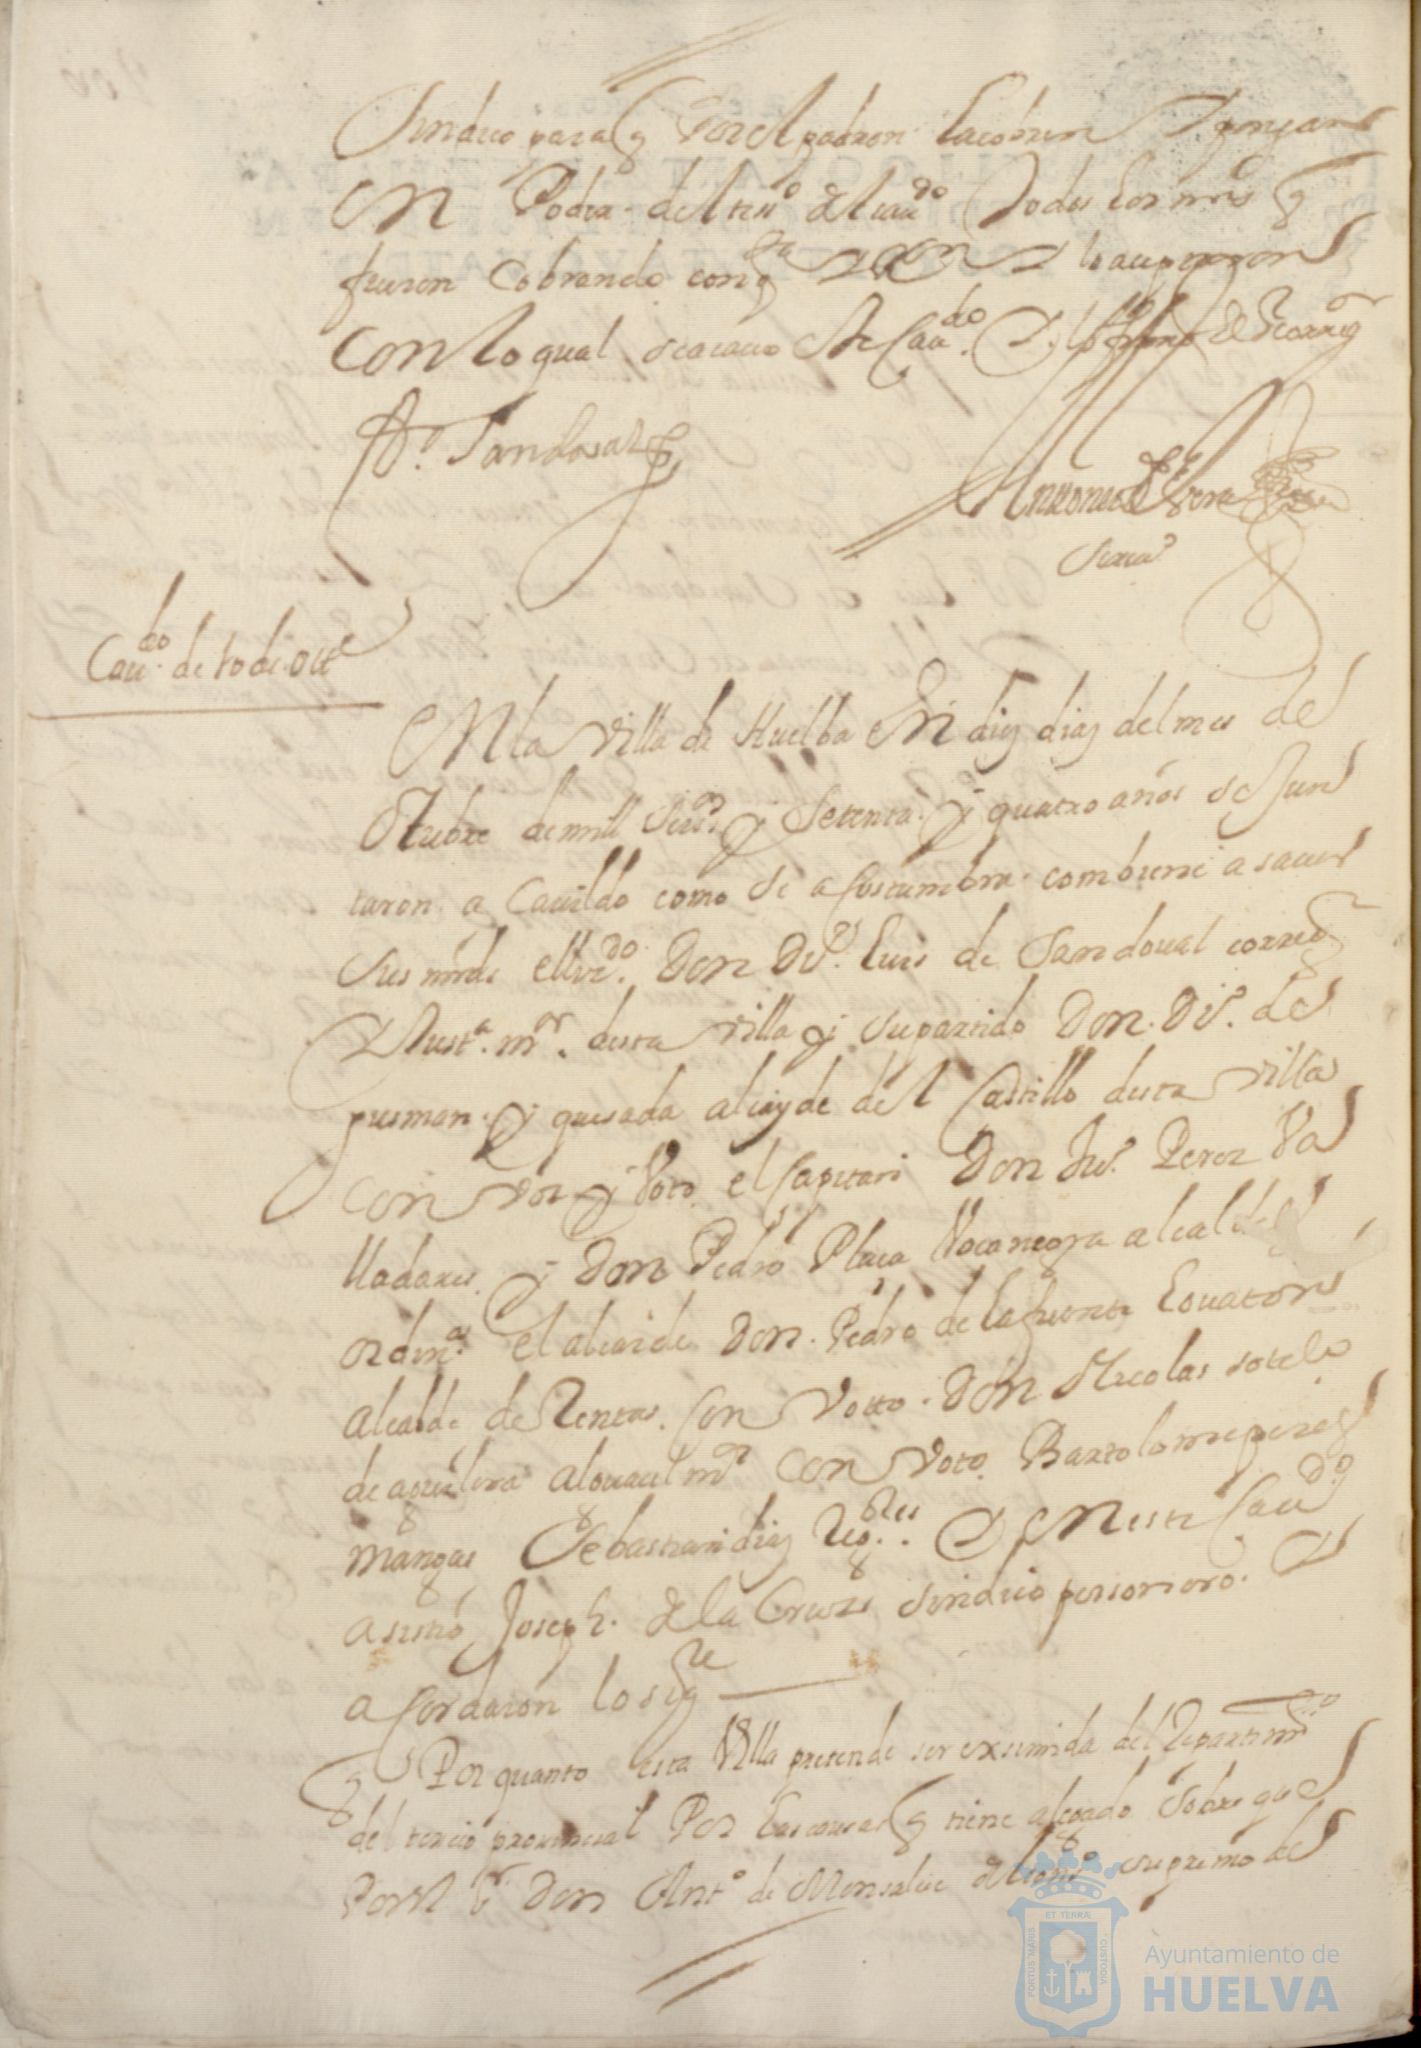 Sindico para q Por el padron la cobren Y pongan
en Poder del tesº del cauᵈᵒ todos los mrs q
fueren Cobrando con qᵗᵃ y raçon Y lo acuperon
Con lo qual se acauo este Cauᵈᵒ. Y lo firmo el s corregᵒʳ
Sandoual
Antonio de Vera
Scriuº
Cauᵈᵒ. de 10 de octᵉ
En la villa de Huelba En dies dias del mes de
Otubre de mill seisᵒˢ y setenta y quatro años se Jun
taron a Cauildo como se a Costumbra combiene a sauer
Sus mrds el lizᵈᵒ. Don Diº. Luis de Sandoual correg
Y Justª. mʳ. desta villa y su partido Don. Diº. de
gusman y quesada alcayde del Castillo desta villa
con vos y Voto el Capitan Don Juº. Perez Va
lladares y Don Pedro Plaça Bocanegra alcaldes
ordinºˢ el alcaide Don. Pedro de la fuente Louaton
alcalde de Rentas con Votto. Don Nicolas sotelo
de aguilera alguacil mʳ con Voto Bartolome peres
mangas Sebastian dias Regᵒʳᵉˢ. Y en este Cauᵈᵒ
asistio Joseph. de la Cruz sindico personero. Y
a Cordaron lo sigᵗᵉ
q Por quanto esta Villa pretende ser exsimida del Repartimᵗᵒ
del tercio provincial Por las causas q tiene alegado Sobre que
Por el sʳ Don Antº de Monsalue del consº supremo de
PORTUS MARIS ET TERRÆ CUSTODIA
Ayuntamiento de
HUELVA